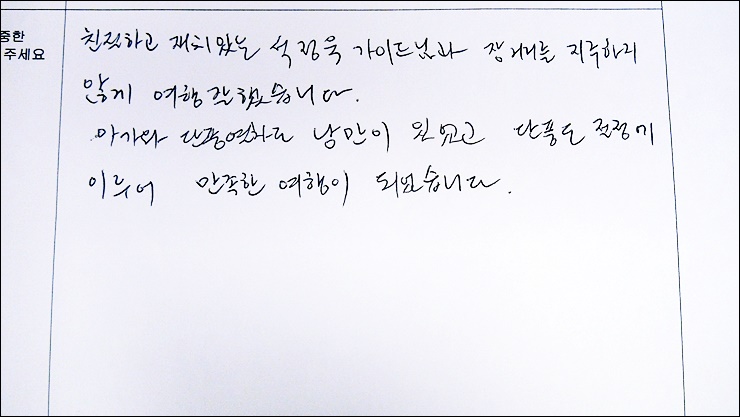 중한
주세요
친절하고 재치있는 석정욱 가이드님과 장거리를 지루하지
않게 여행 잘했습니다.
아가와 단풍열차도 낭만이 있었고 단풍도 절정기
이루어 만족한 여행이 되었습니다.